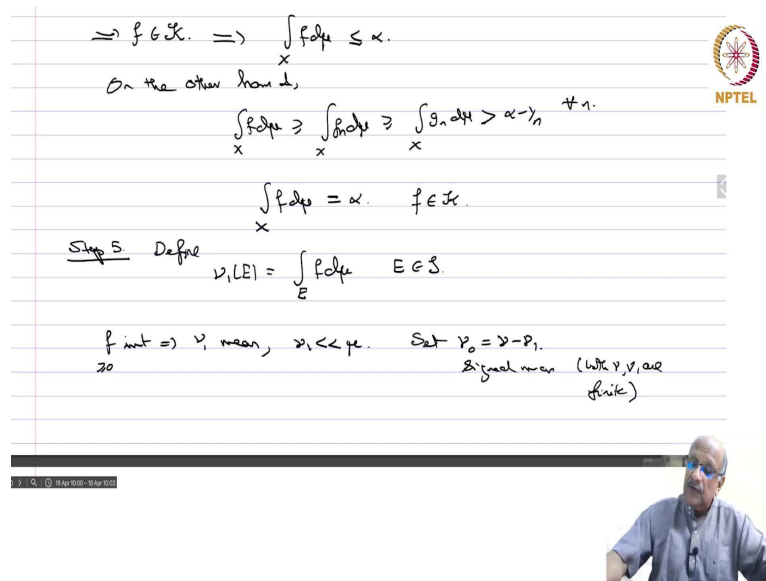 ⇒ f ∈ K. ⇒ ∫_X f dμ ≤ α.
On the other hand,
∫_X f dμ ≥ ∫_X f_n dμ ≥ ∫_X g_n dμ > α - 1/n ∀ n.
NPTEL
∫_X f dμ = α. f ∈ K.
Step 5. Define
ν₁(E) = ∫_E f dμ E ∈ S.
f int ⇒ ν₁ meas, ν₁ << μ. Set ν₀ = ν - ν₁.
≥0 signed meas (both ν, ν₁ are
finite)
18 Apr 10:00 – 18 Apr 10:03